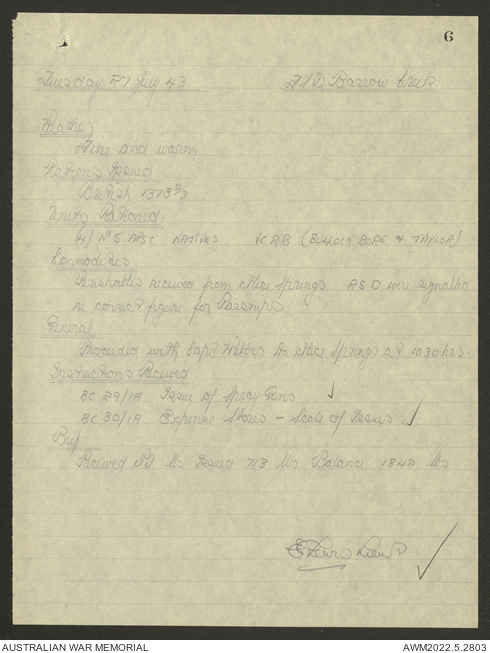 6
Tuesday 27 July 43 FSD Barrow Creek
Weather
Fine and warm
Rations Issued
British 1373 2/3
Units Rationed
(4) No 5 APSC NATIVES VCRB (BULLOCK BORE & TAYLOR)
Commodities
Perishables received from Alice Springs RSD were signalled
re correct figure for Parsnips
General
Proceeded with Capt Webber to Alice Springs at 1030 hrs.
Instructions Received
BC 29/1A Issue of Spray Guns ✓
BC 30/1A Expense Stores - Scale of Issues ✓
Beef
Received Nil lbs Issued 713 lbs Balance 1848 lbs
Lieut
AUSTRALIAN WAR MEMORIAL AWM2022.5.2803